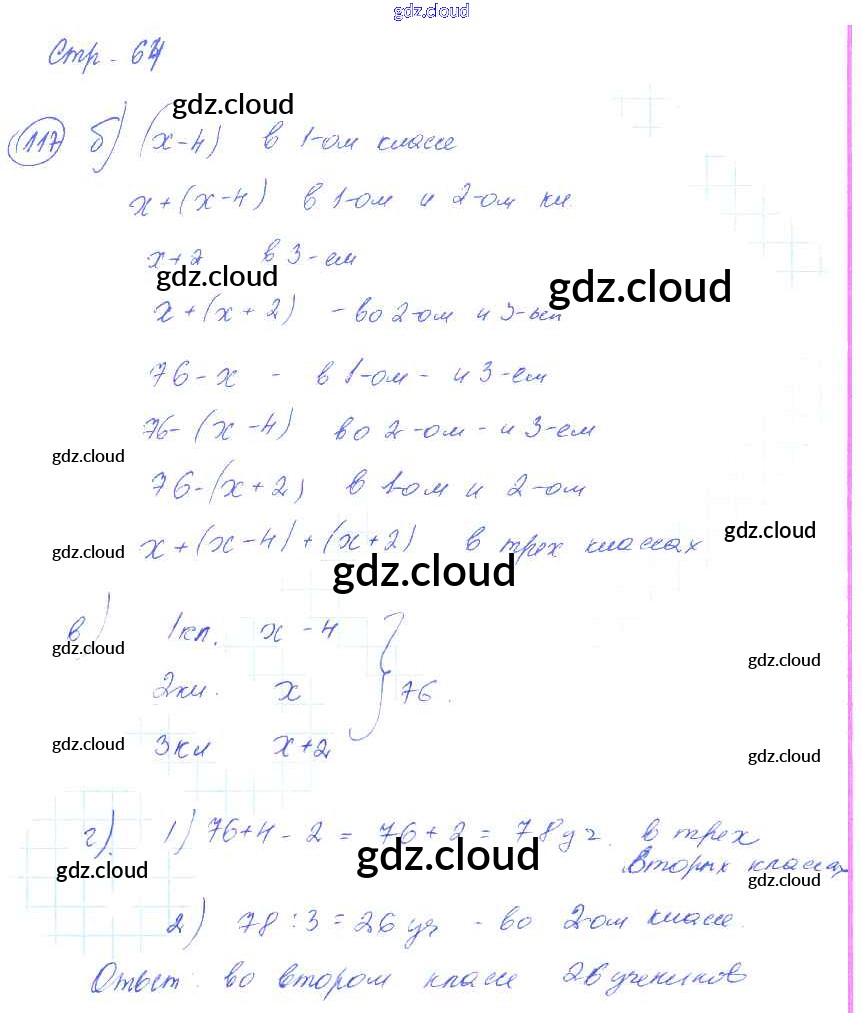 gdz.cloud
Стр. 64
gdz.cloud
117 б) (x-4) в 1-ом классе
x+(x-4) в 1-ом и 2-ом кл.
x+2 в 3-ем
gdz.cloud
gdz.cloud
x+(x+2) - во 2-ом и 3-ем
76-x - в 1-ом - и 3-ем
76-(x-4) во 2-ом - и 3-ем
gdz.cloud
76-(x+2) в 1-ом и 2-ом
gdz.cloud
x+(x-4)+(x+2) в трех классах
gdz.cloud
gdz.cloud
в) 1кл. x-4
gdz.cloud
gdz.cloud
2кл. x } 76.
3кл x+2
gdz.cloud
gdz.cloud
г) 1) 76+4-2 = 76+2 = 78 уч. в трех
вторых классах
gdz.cloud
gdz.cloud
gdz.cloud
2) 78:3=26 уч - во 2-ом классе.
Ответ: во втором классе 26 учеников